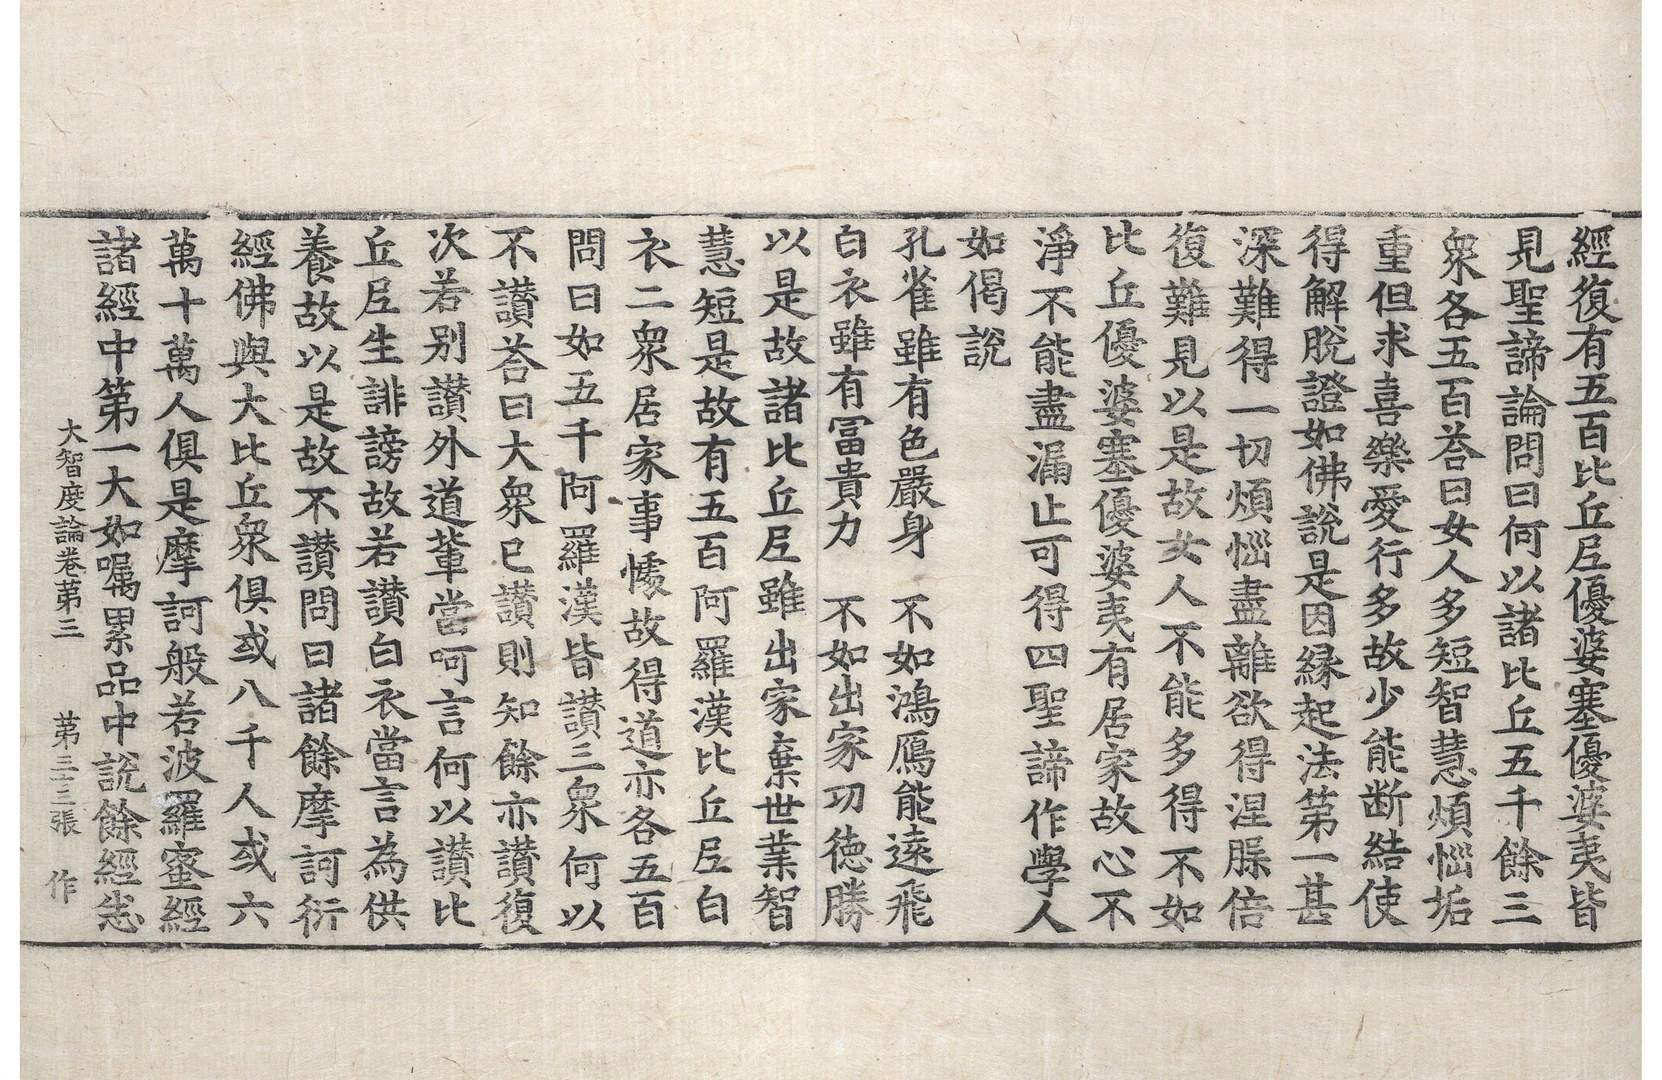 經復有五百比丘尼優婆塞優婆夷皆
見聖諦論問曰何以諸比丘五千餘三
衆各五百荅曰女人多短智慧煩惱垢
重但求喜樂愛行多故少能断結使
得解脫證如佛說是因緣起法第一甚
深難得一切煩惱盡離欲得涅槃倍
復難見以是故女人不能多得不如
比丘優婆塞優婆夷有居家故心不
淨不能盡漏止可得四聖諦作學人
如偈說
孔雀雖有色嚴身　不如鴻鴈能遠飛
白衣雖有冨貴力　不如出家功徳勝
以是故諸比丘尼雖出家棄世業智
慧短是故有五百阿羅漢比丘尼白
衣二衆居家事懅故得道亦各五百
問曰如五千阿羅漢皆讃三衆何以
不讃荅曰大衆已讃則知餘亦讃復
次若别讃外道輩當呵言何以讃比
丘尼生誹謗故若讃白衣當言為供
養故以是故不讃問曰諸餘摩訶衍
經佛與大比丘衆俱或八千人或六
萬十萬人俱是摩訶般若波羅蜜經
諸經中第一大如嘱累品中説餘經悉
大智度論卷苐三　苐三十二張　作